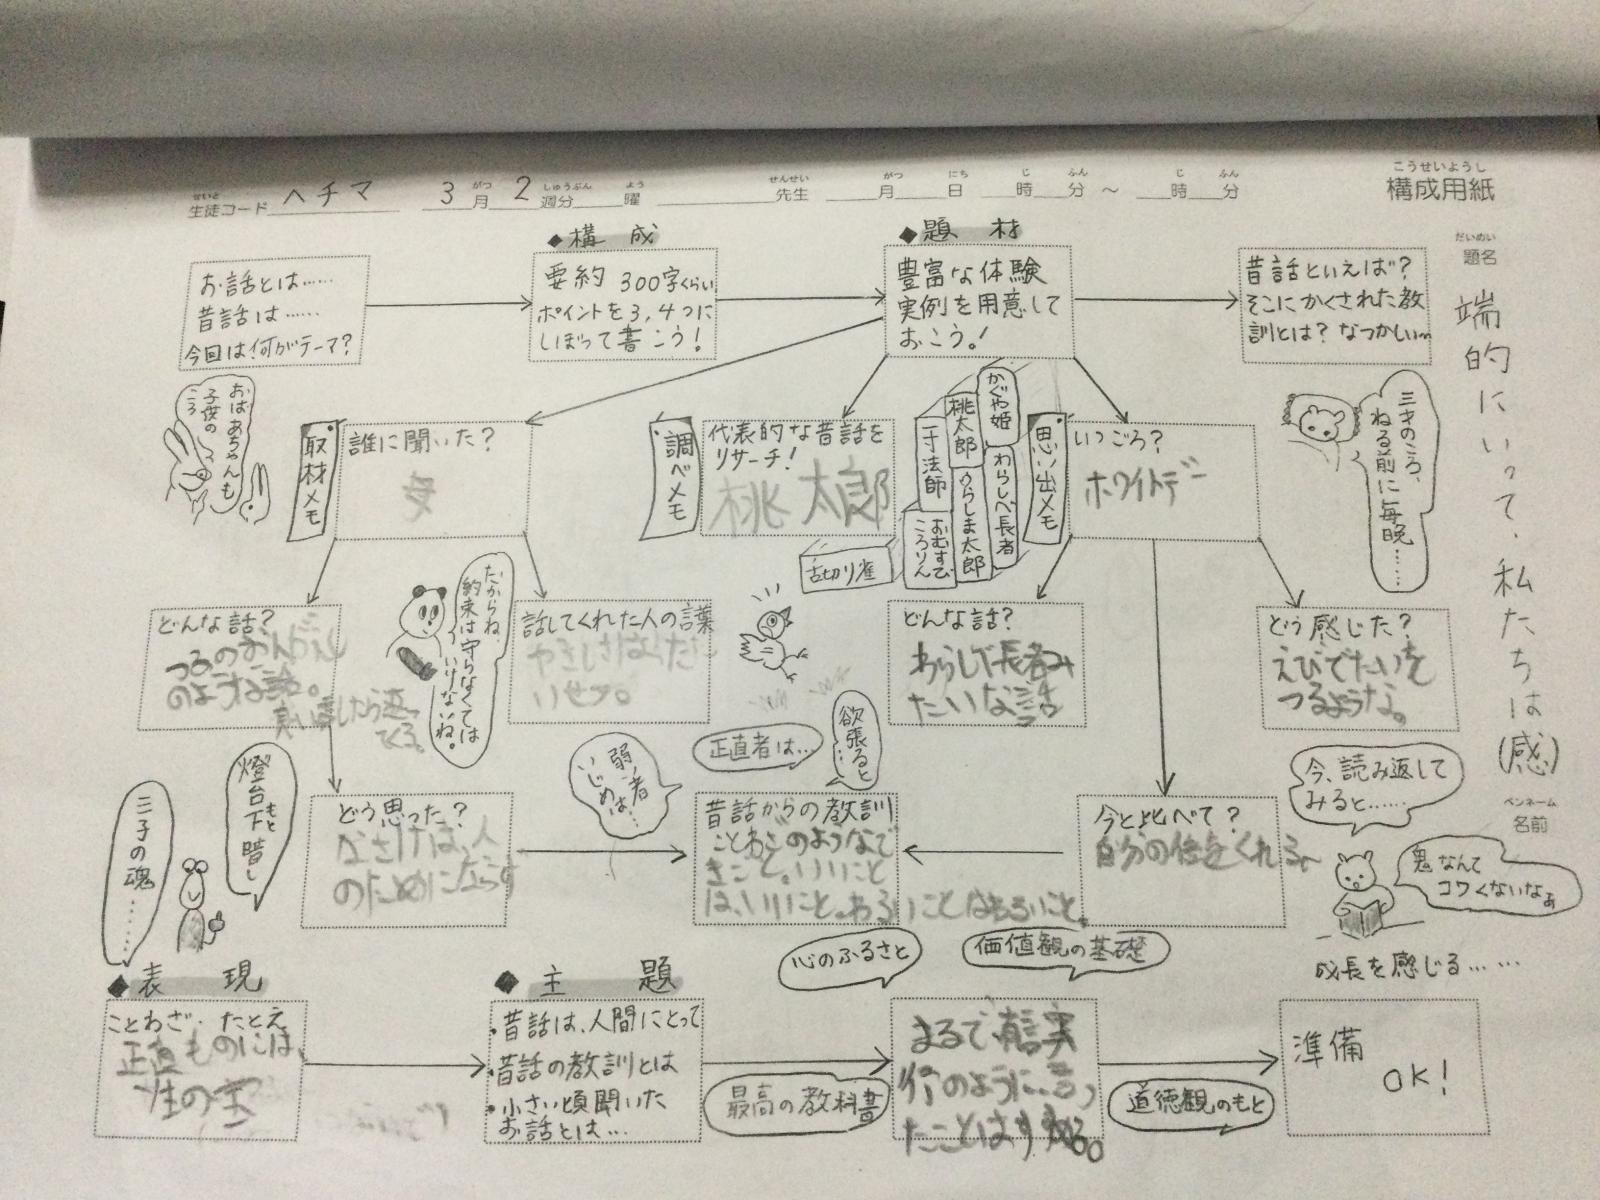 こうせいようし
構成用紙
せいと
生徒コード ヘチマ 3月 2週分 曜 先生 月 日 時 分 〜 時 分
だいめい
題名
端的にいって、私たちは(感)
ペンネーム
名前
お話とは……
昔話は……
今回は何がテーマ?
◆構 成
要約 300字くらい
ポイントを3,4つに
しぼって書こう!
◆題 材
豊富な体験
実例を用意して
おこう!
昔話といえば?
そこにかくされた教
訓とは? なつかしい〜
おばあちゃんも
子供の
ころ
取材メモ
誰に聞いた?
調べメモ
代表的な昔話を
リサーチ!
桃太郎
かぐや姫
桃太郎
一寸法師
わらしべ長者
うらしま太郎
おむすび
ころりん
舌切り雀
思い出メモ
いつごろ?
ホワイトデー
三才のころ、
ねる前に毎晩……
どんな話?
つるのおんがえし
のような話。
だからね、
約束は守らなくては
いけないね。
話してくれた人の言葉
どんな話?
わらしべ長者み
たいな話
どう感じた?
えびでたいを
つるような。
三子の魂……
燈台下暗し
もと
どう思った?
なさけは、人
のためにならず
弱い者
いじめは…
正直者は…
欲張ると
…
昔話からの教訓
ことわざのようなで
きごと。いいこと
は、いいこと。わるいことはわるいこと。
今と比べて?
今、読み返して
みると……
鬼なんて
コワくないなぁ
成長を感じる……
心のふるさと
価値観の基礎
◆表 現
ことわざ・たとえ
正直ものには、
◆主 題
・昔話は、人間にとって
・昔話の教訓とは
・小さい頃聞いた
お話とは…
最高の教科書
まるで、有言実
行のように、言っ
たことは
道徳観のもと
準備
OK!